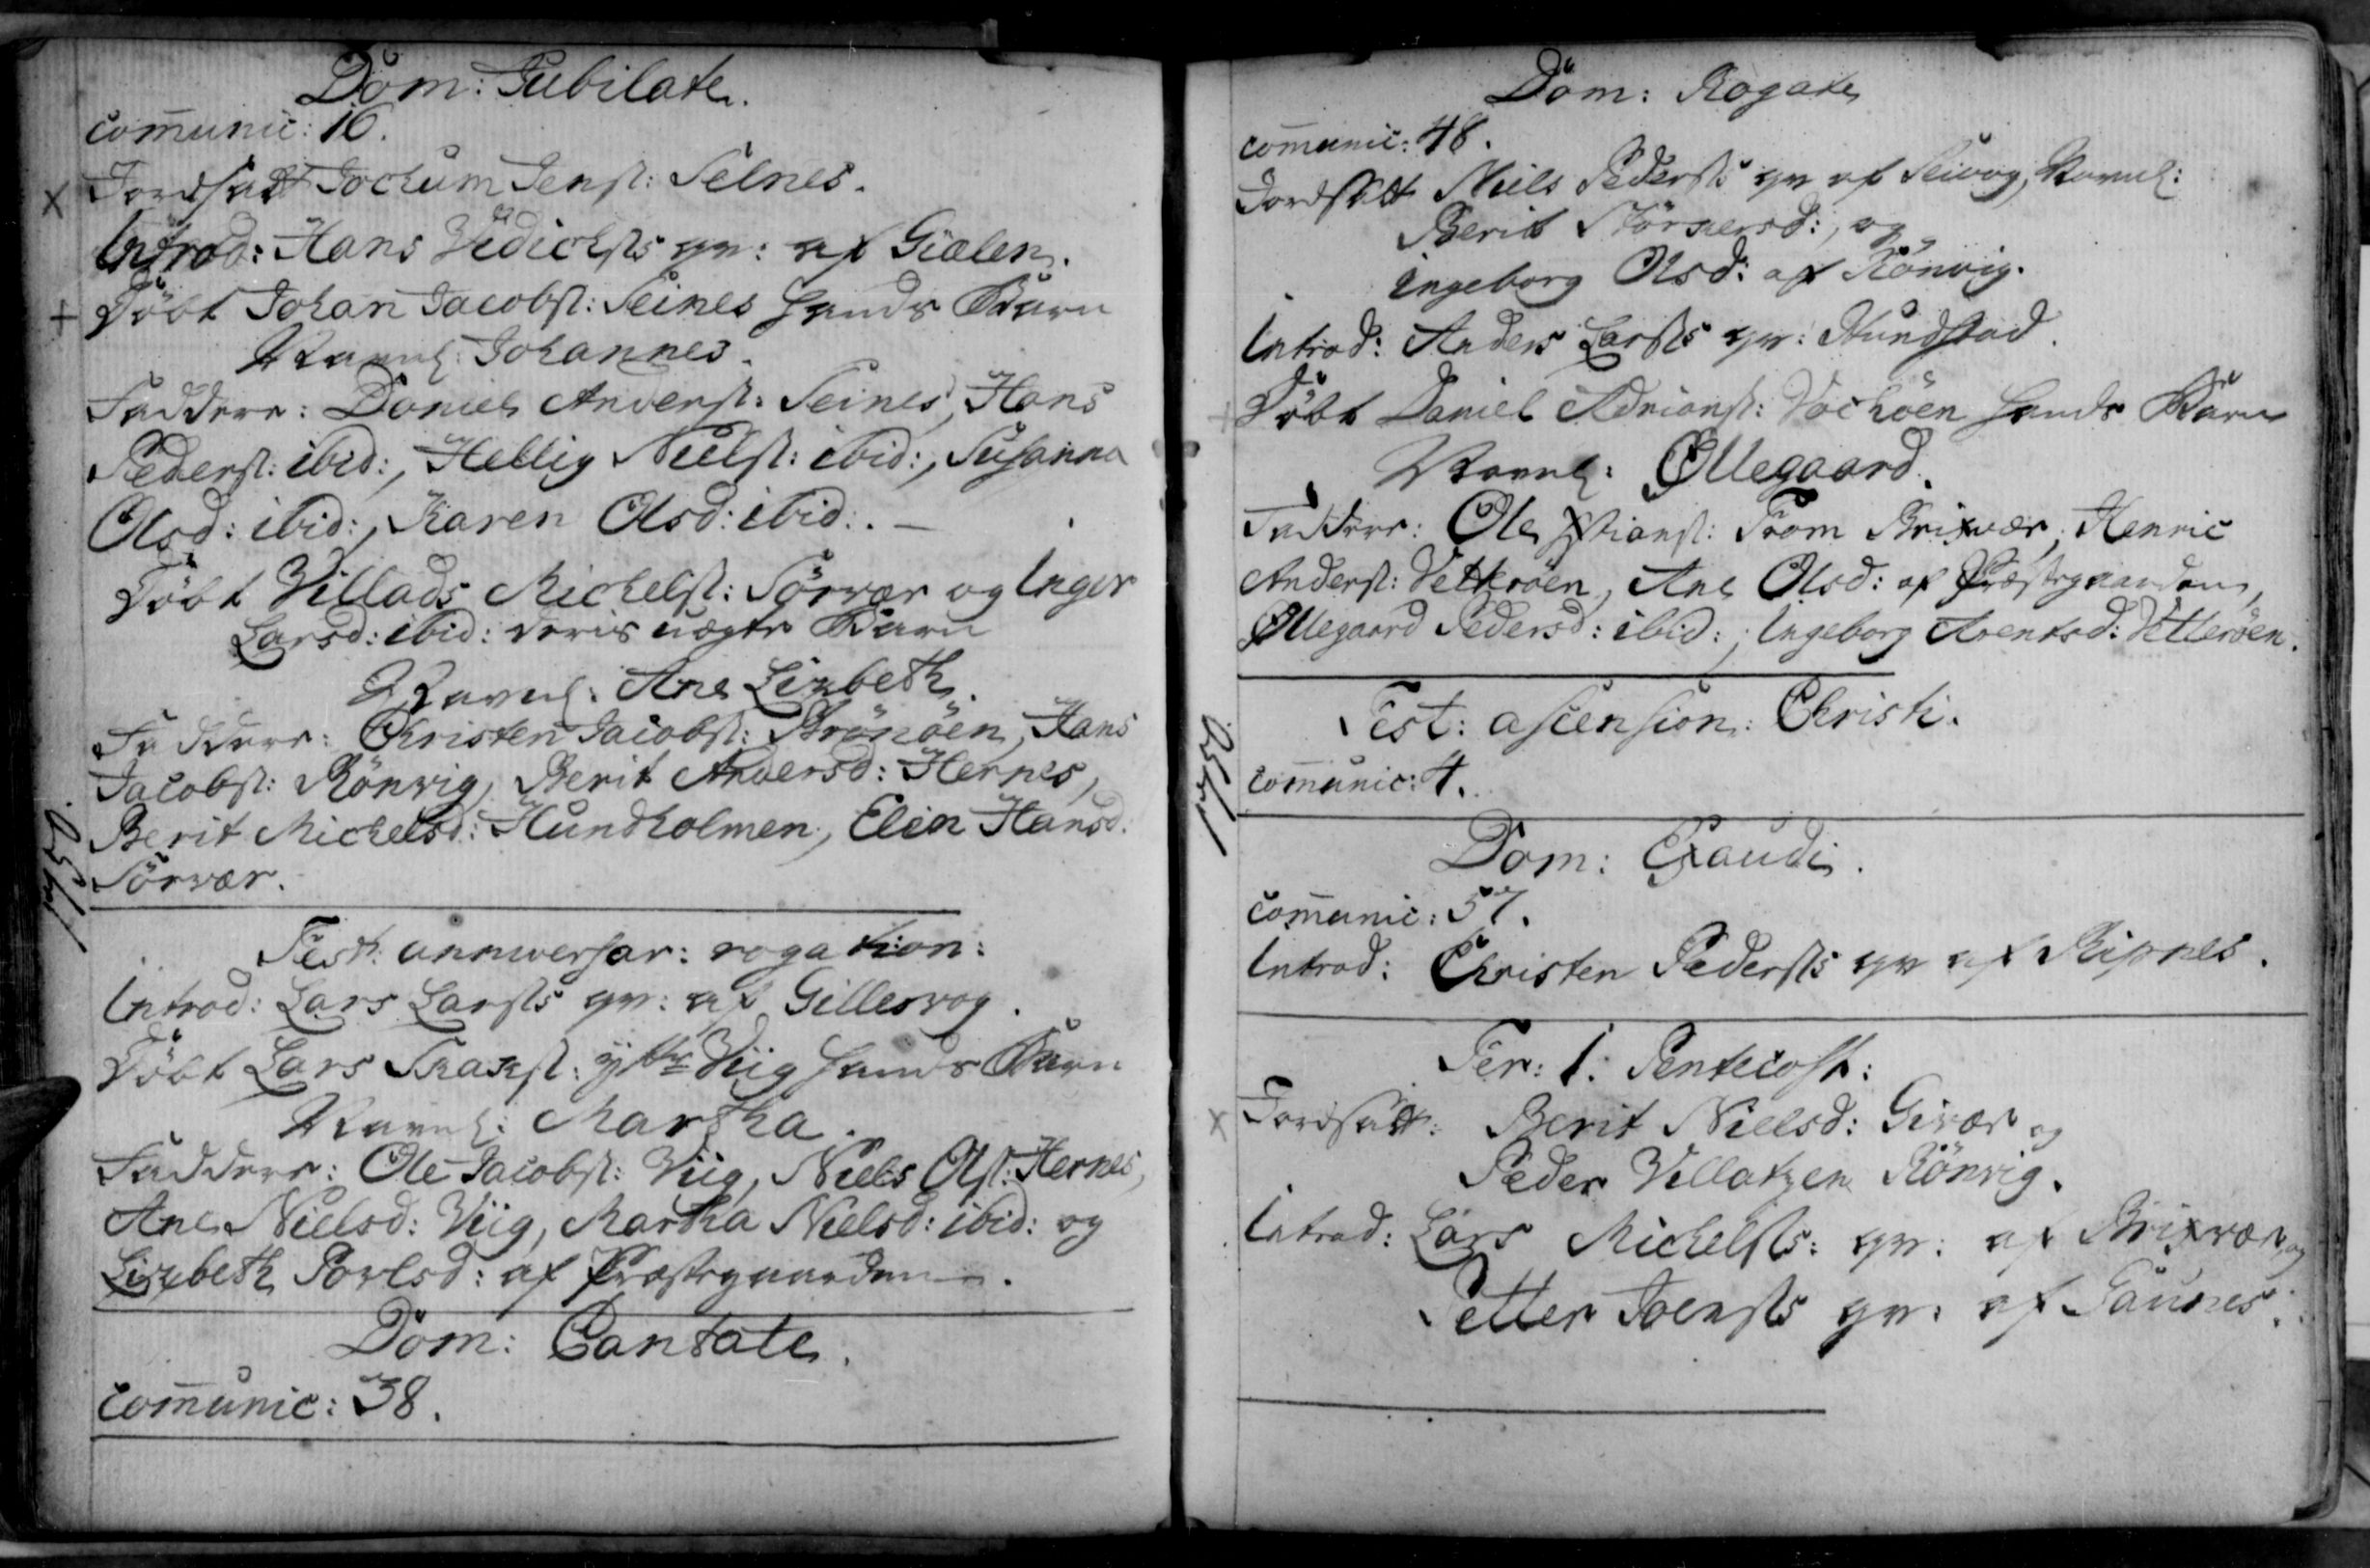 Dom: Jubilate.
communic: 16.
Jordsatt Jochum Jens: Selnes.
Introd: Hans Vedichss qv: af Gielen.
Döbt Johan Jacobs: Seines hands Barn
Navnl: Johannes.
Faddere: Daniel Anders: Seines, Hans
Peders: ibid:, Hellig Niels: ibid:, Susanna
Olsd: ibid:, Karen Olsd: ibid:. —
Döbt Villads Michels: Sörvær og Inger
Larsd: ibid: deris uægte Barn
Navnl: Ane Lizbeth.
Faddere: Christen Jacobs: Brönöen, Hans
Jacobs: Rönvig, Berit Andersd: Hernes,
Berit Michelsd: Hundholmen, Elen Hansd:
Sörvær.
1750.
Fest: anniversar: rogation:
Introd: Lars Larss qv: af Gillesvog.
Döbt Lars hands Barn
Navnl: Martha.
Faddere: Ole Jacobs: Viig, Niels Ols: Hernes,
Ane Nielsd: Viig, Martha Nielsd: ibid: og
Lizbeth Povlsd: af Præstegaarden.
Dom: Cantate.
communic: 38.
Dom: Rogate
communic: 48.
Jordsatt Niels Pederss qv af Navnl:
Berit og
Ingeborg Olsd: af Rönvig.
Introd: Anders Larss qv: Hundstad.
Döbt Daniel Adrians: hands Barn
Navnl: Øllegaard.
Faddere: Ole Xstians: From Brixvær, Henric
Anders: Vetteröen, Ane Olsd: af Præstegaarden,
Øllegaard Pedersd: ibid:, Ingeborg Arentsd: Vetteröen.
Fest: ascension: Christi.
1750.
communic: 4.
Dom: Exaudi.
communic: 57.
Introd: Christen Peders qv af Ripnes.
Fer: 1: Pentecost:
Jordsatt: Berit Nielsd: Givær og
Peder Villatzen Rönvig.
Introd: Lars Michelss: qv: af Brixvær og
Petter Joenss qv: af